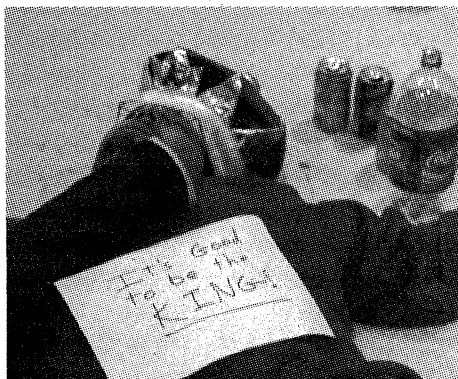 It's Good
to be the
KING!